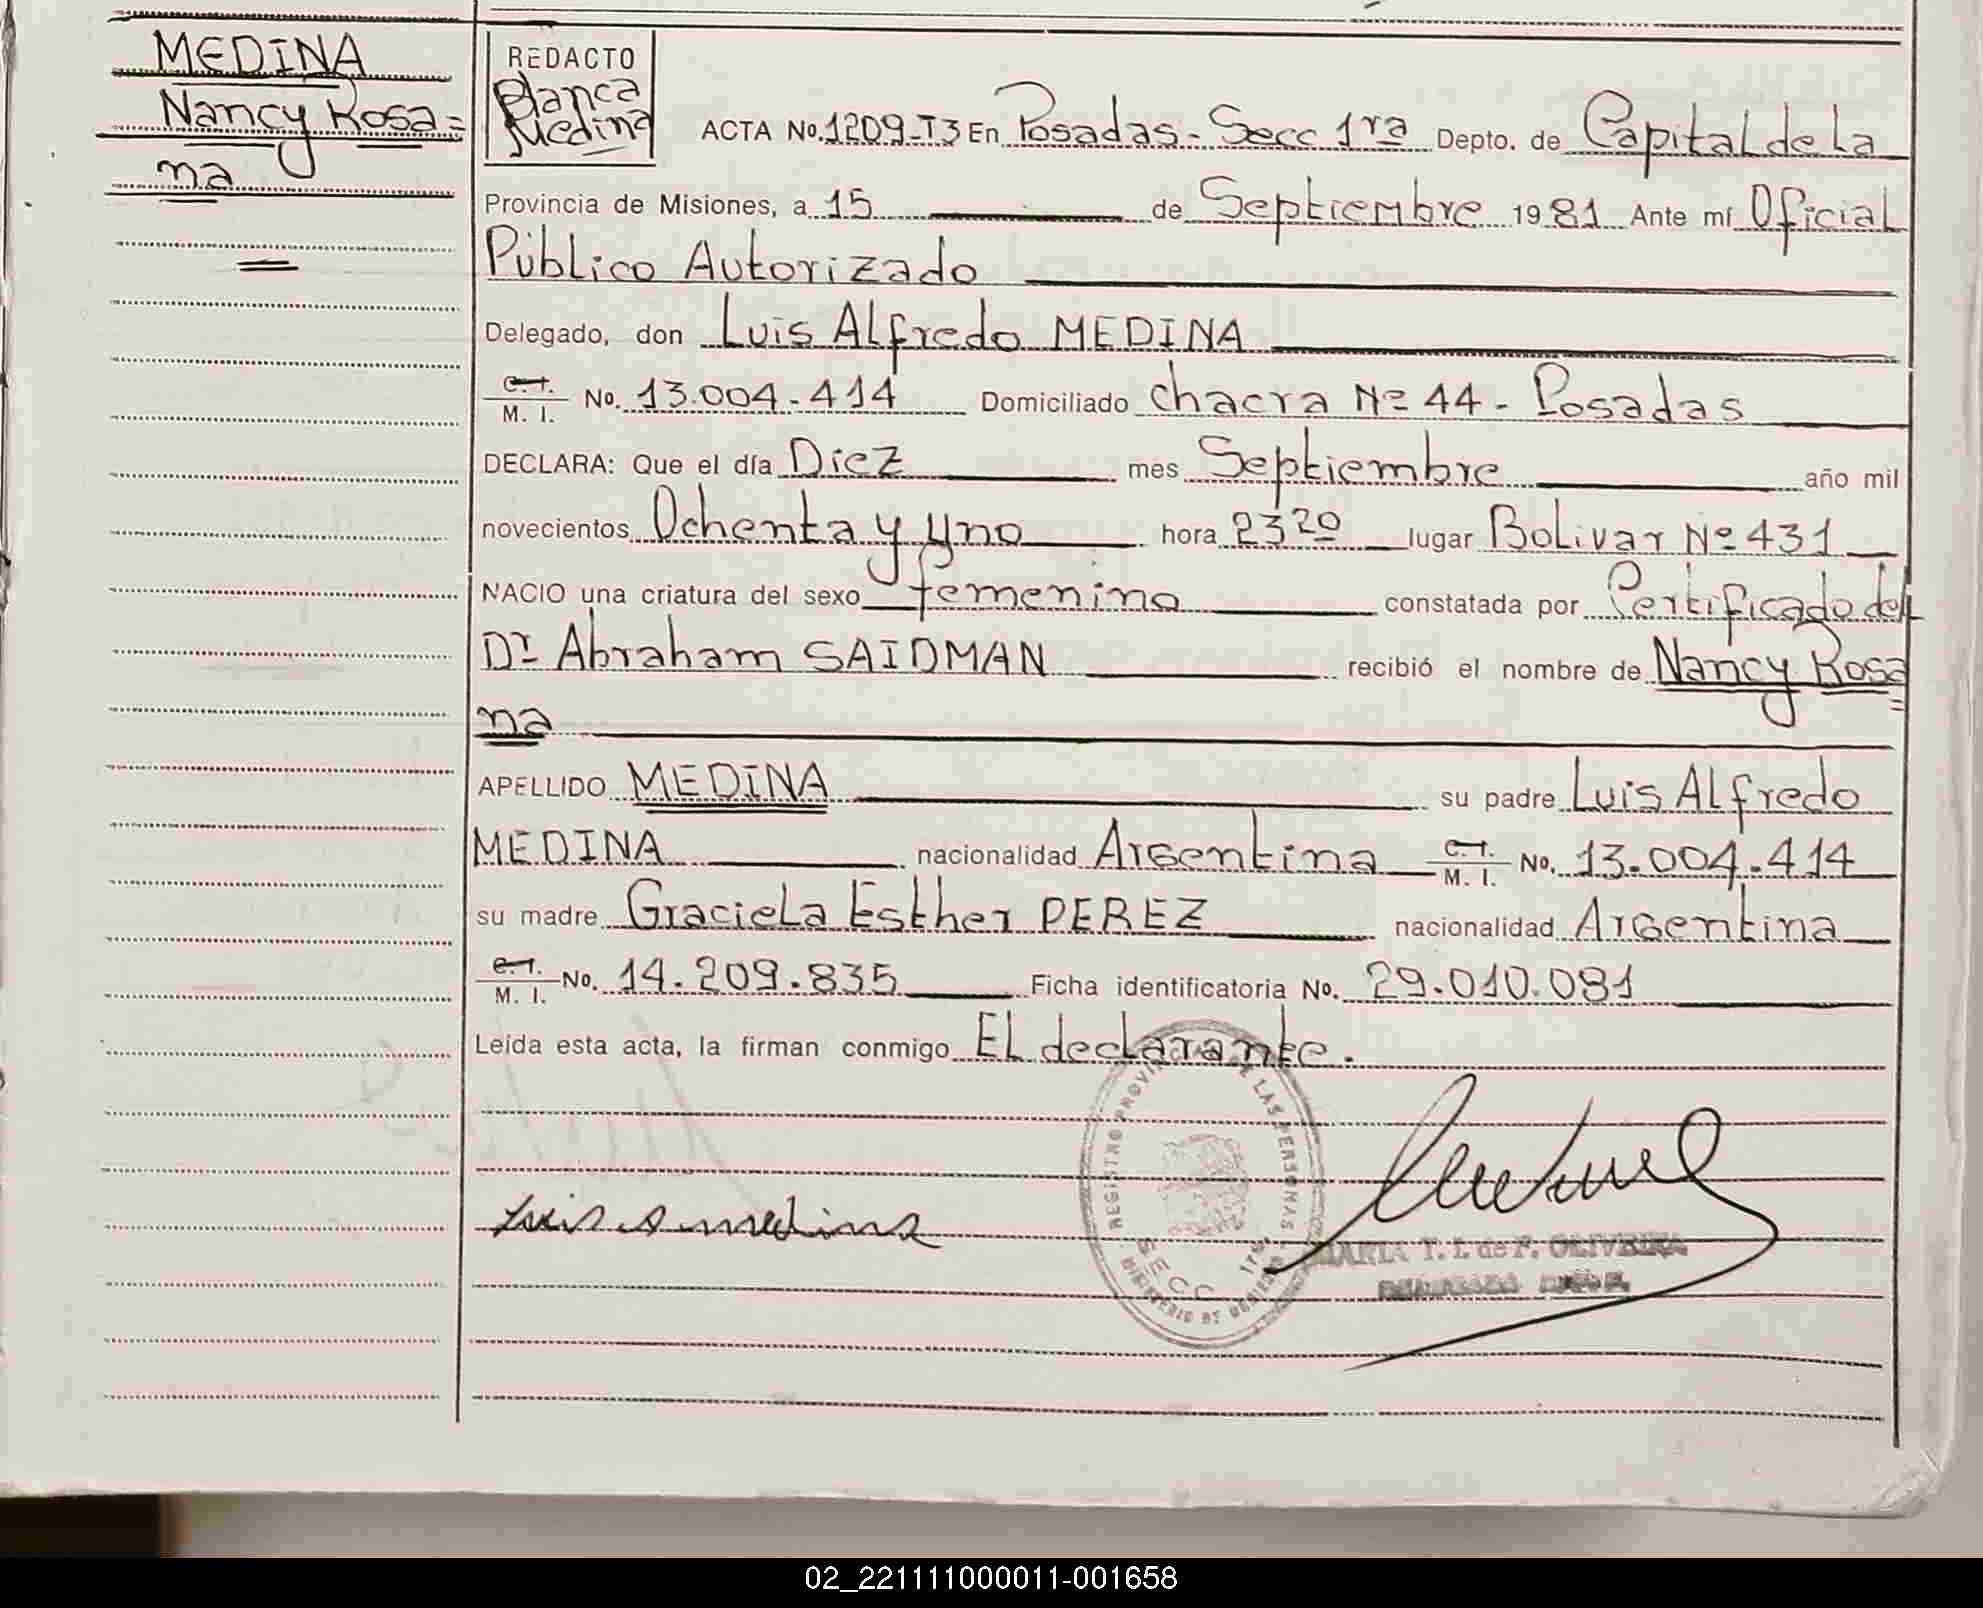 MEDINA
Nancy Rosa=
na
REDACTO
Blanca
Medina
ACTA No. 1209-T3 En Posadas - Secc 1ra Depto. de Capital de La
Provincia de Misiones, a 15 de Septiembre 1981 Ante mí Oficial
Público Autorizado
Delegado, don Luis Alfredo MEDINA
C. I.
M. I. No. 13.004.414 Domiciliado chacra Nº 44 - Posadas
DECLARA: Que el día Diez mes Septiembre año mil
novecientos Ochenta y Uno hora 23 20 lugar Bolivar Nº 431
NACIO una criatura del sexo femenino constatada por Certificado del
Dr Abraham SAIDMAN recibió el nombre de Nancy Rosa=
na
APELLIDO MEDINA su padre Luis Alfredo
MEDINA nacionalidad Argentina C. I.
M. I. No. 13.004.414
su madre Graciela Esther PEREZ nacionalidad Argentina
C. I.
M. I. No. 14.209.835 Ficha identificatoria No. 29.010.081
Leída esta acta, la firman conmigo El declarante.
REGISTRO PROVI DE LAS PERSONAS
SECC 1ra
MINISTERIO DE GOBIERNO
Luis A medina
MARIA T. I. de F. OLIVEIRA
02_221111000011-001658